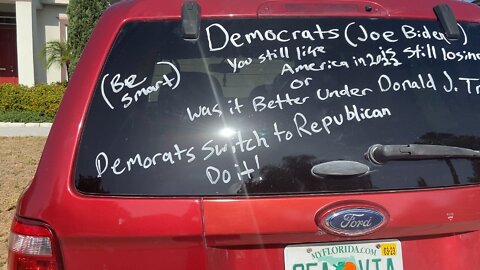 Democrats (Joe Biden)
You still like is still losing
America in 2022
or
(Be
Smart)
Was it Better Under Donald J. Tr
Demorats Switch to Republican
Do it!
Ford
MYFLORIDA.COM
03-23